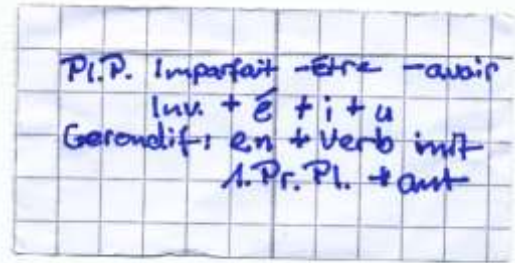 Pl.P. Imparfait -Etre -avoir
Inv. + é + i + u
Gerondif: en + Verb mit
1.Pr.Pl. + ant